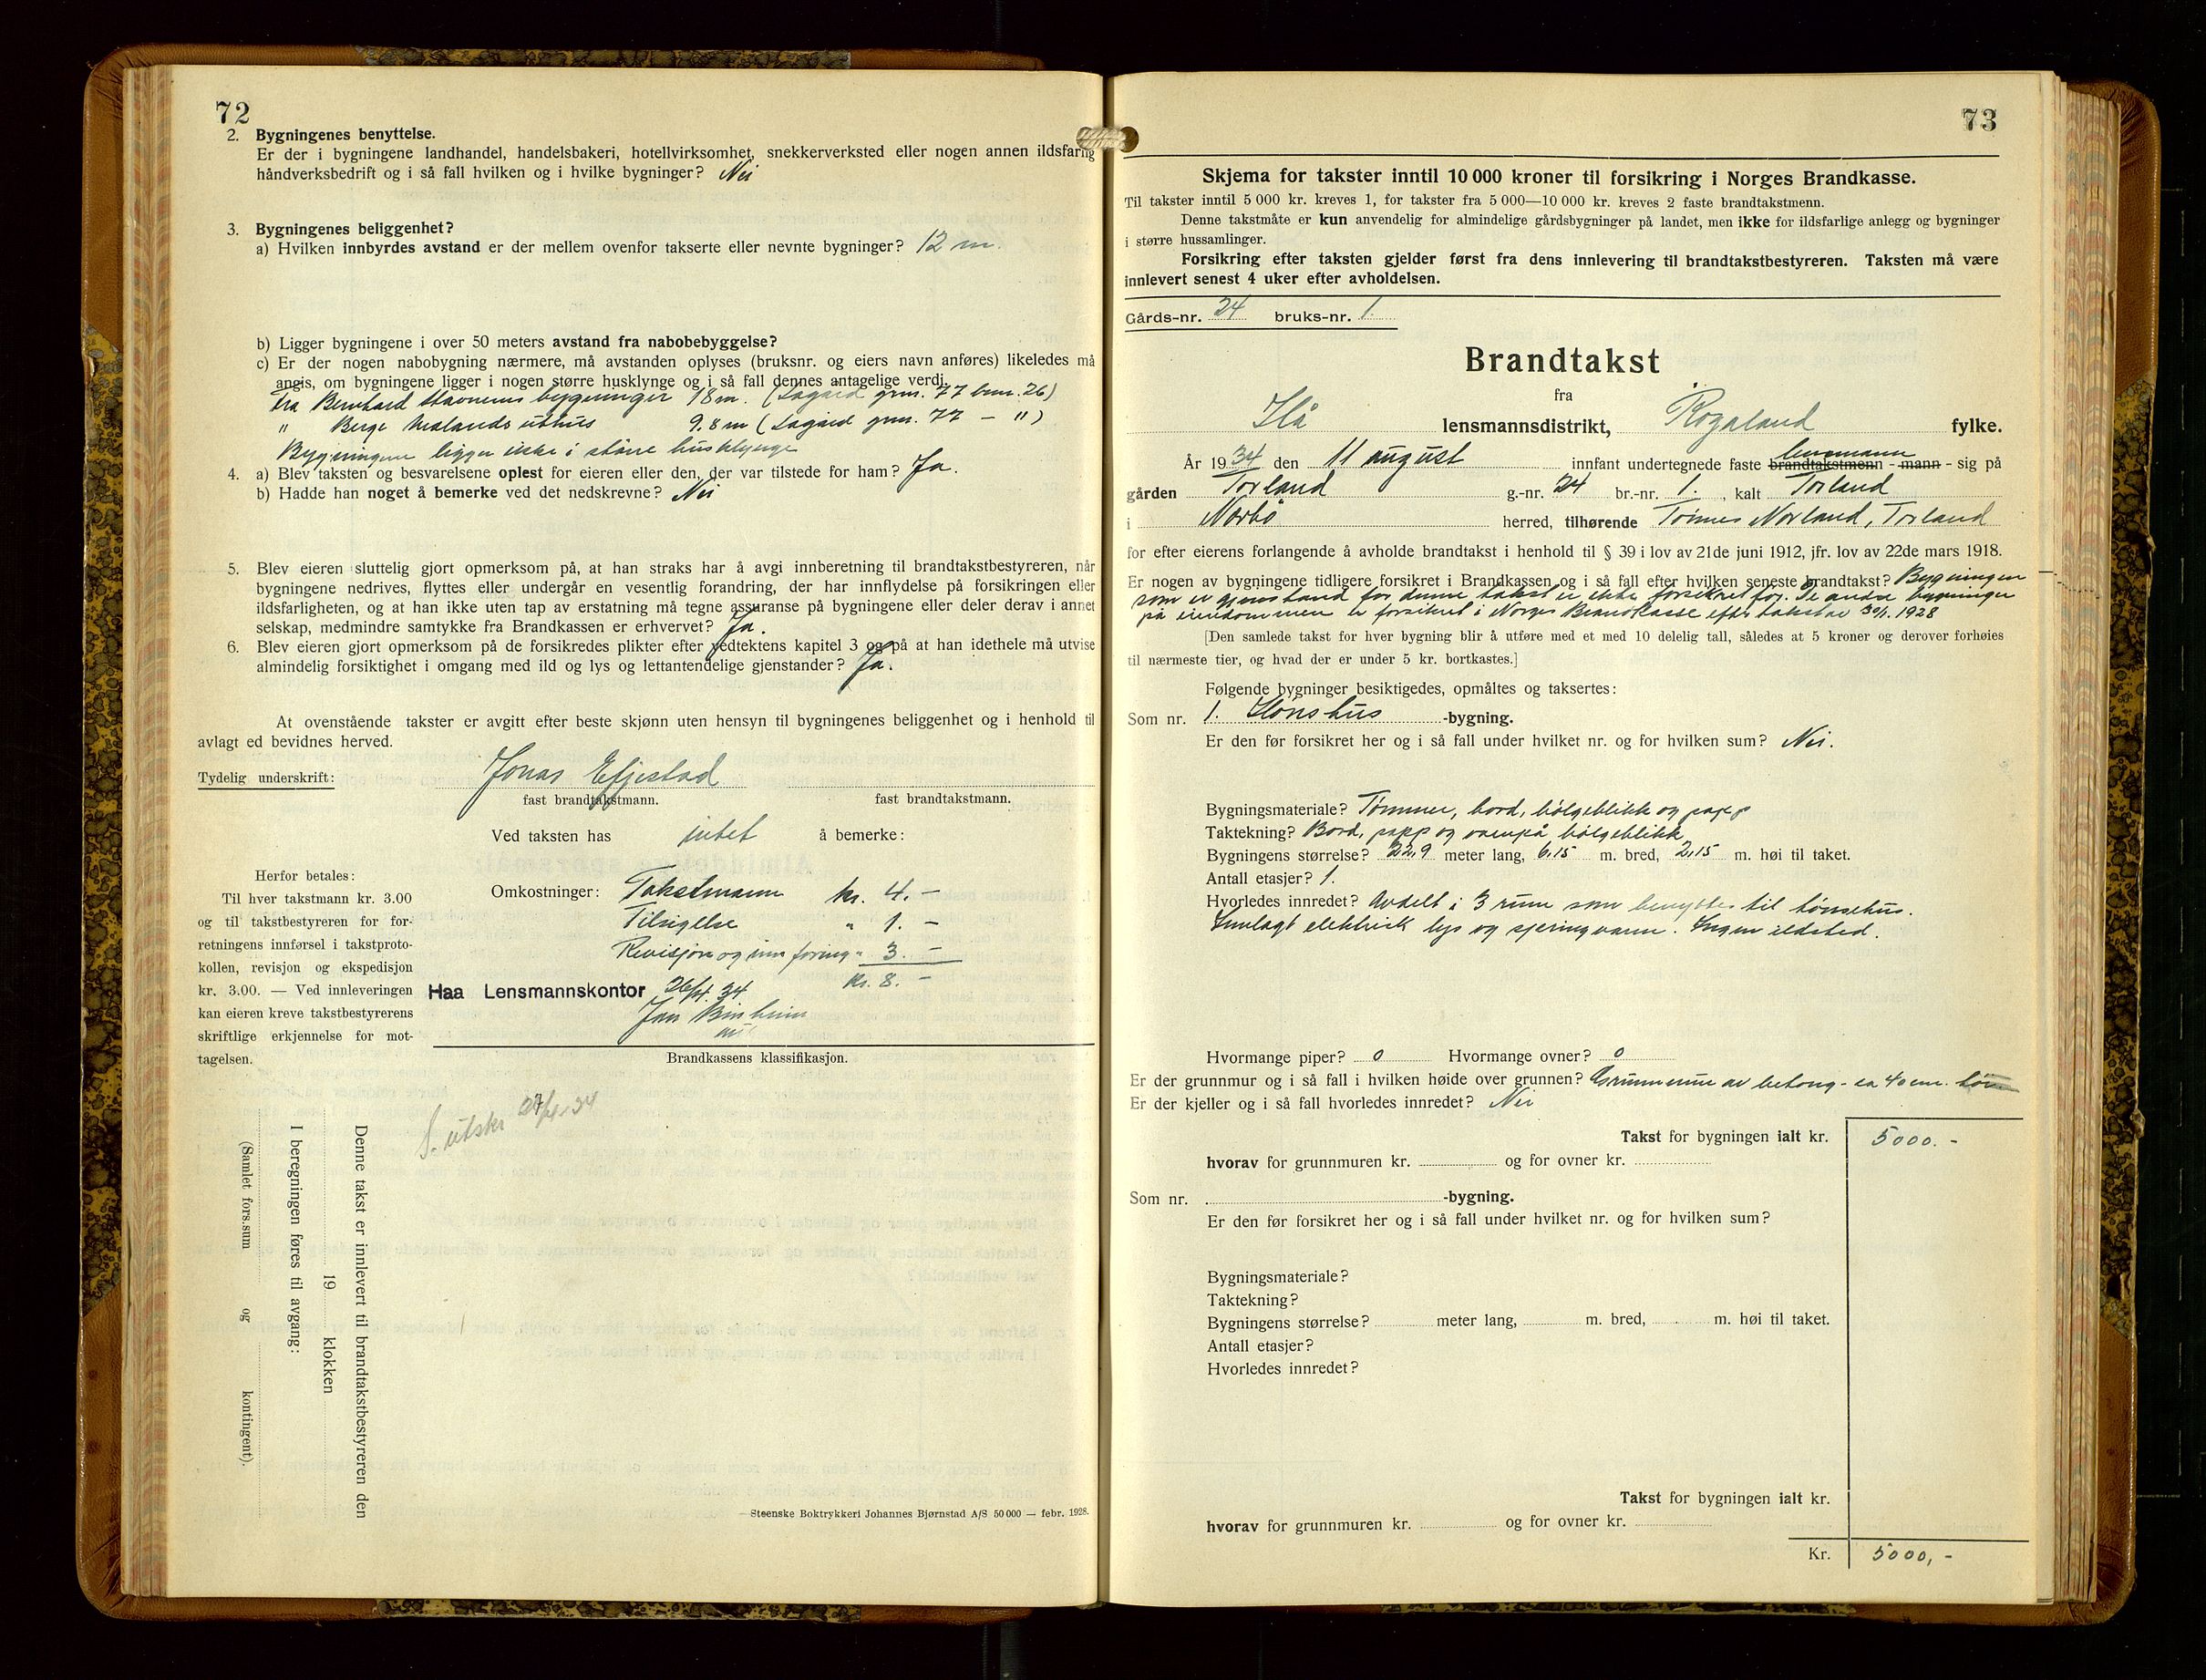 72
2. Bygningenes benyttelse.
Er der i bygningene landhandel, handelsbakeri, hotellvirksomhet, snekkerverksted eller nogen annen ildsfarlig
håndverksbedrift og i så fall hvilken og i hvilke bygninger? Nei
3. Bygningenes beliggenhet?
a) Hvilken innbyrdes avstand er der mellem ovenfor takserte eller nevnte bygninger? 12 m.
b) Ligger bygningene i over 50 meters avstand fra nabobebyggelse?
c) Er der nogen nabobygning nærmere, må avstanden oplyses (bruksnr. og eiers navn anføres) likeledes må
angis, om bygningene ligger i nogen større husklynge og i så fall dennes antagelige verdi.
Fra Bernhard Stavnems bygninger 18 m. (Lagård grn. 77 brn. 26)
" Berge Malands uthus 9.8 m (Lagård grn. 77 - ")
Bygningene ligger ikke i större husklynge
4. a) Blev taksten og besvarelsene oplest for eieren eller den, der var tilstede for ham? Ja.
b) Hadde han noget å bemerke ved det nedskrevne? Nei
5. Blev eieren sluttelig gjort opmerksom på, at han straks har å avgi innberetning til brandtakstbestyreren, når
bygningene nedrives, flyttes eller undergår en vesentlig forandring, der har innflydelse på forsikringen eller
ildsfarligheten, og at han ikke uten tap av erstatning må tegne assuranse på bygningene eller deler derav i annet
selskap, medmindre samtykke fra Brandkassen er erhvervet? Ja.
6. Blev eieren gjort opmerksom på de forsikredes plikter efter vedtektens kapitel 3 og på at han idethele må utvise
almindelig forsiktighet i omgang med ild og lys og lettantendelige gjenstander? Ja.
At ovenstående takster er avgitt efter beste skjønn uten hensyn til bygningenes beliggenhet og i henhold til
avlagt ed bevidnes herved.
Tydelig underskrift: Jonas Efjestad
fast brandtakstmann. fast brandtakstmann.
Ved taksten has intet å bemerke:
Herfor betales:
Til hver takstmann kr. 3.00
og til takstbestyreren for for-
retningens innførsel i takstproto-
kollen, revisjon og ekspedisjon
kr. 3.00. — Ved innleveringen
kan eieren kreve takstbestyrerens
skriftlige erkjennelse for mot-
tagelsen.
Omkostninger: Takstmann kr. 4.-
Tilsigelse " 1.-
Revisjon og innföring " 3.-
kr. 8.-
Haa Lensmannskontor 26/4. 34
Jon
Brandkassens klassifikasjon.
S. utskr 27/4-34
Denne takst er innlevert til brandtakstbestyreren den
19 klokken
I beregningen føres til avgang:
(Samlet fors.sum og kontingent).
Steenske Boktrykkeri Johannes Bjørnstad A/S 50 000 — febr. 1928.
73
Skjema for takster inntil 10 000 kroner til forsikring i Norges Brandkasse.
Til takster inntil 5 000 kr. kreves 1, for takster fra 5 000—10 000 kr. kreves 2 faste brandtakstmenn.
Denne takstmåte er kun anvendelig for almindelige gårdsbygninger på landet, men ikke for ildsfarlige anlegg og bygninger
i større hussamlinger.
Forsikring efter taksten gjelder først fra dens innlevering til brandtakstbestyreren. Taksten må være
innlevert senest 4 uker efter avholdelsen.
Gårds-nr. 24 bruks-nr. 1.
Brandtakst
fra
Hå lensmannsdistrikt, Rogaland fylke.
lensmann
År 1934 den 11 august innfant undertegnede faste brandtakstmenn - mann - sig på
gården Torland g.-nr. 24 br.-nr. 1. , kalt Torland
i Nærbö herred, tilhørende Tönnes Norland, Torland
for efter eierens forlangende å avholde brandtakst i henhold til § 39 i lov av 21de juni 1912, jfr. lov av 22de mars 1918.
Er nogen av bygningene tidligere forsikret i Brandkassen og i så fall efter hvilken seneste brandtakst? Bygningen
som er gjenstand for denne takst er ikke forsikret för. De andre bygninger
på eiendommen er forsikret i Norges Brandkasse efter takst av 30/1. 1928
[Den samlede takst for hver bygning blir å utføre med et med 10 delelig tall, således at 5 kroner og derover forhøies
til nærmeste tier, og hvad der er under 5 kr. bortkastes.]
Følgende bygninger besiktigedes, opmåltes og taksertes:
Som nr. 1. Hönshus -bygning.
Er den før forsikret her og i så fall under hvilket nr. og for hvilken sum? Nei.
Bygningsmateriale? Tömmer, bord, bölgeblikk og papp
Taktekning? Bord, papp og ovenpå bölgeblikk
Bygningens størrelse? 22,9 meter lang, 6,15 m. bred, 2,15 m. høi til taket.
Antall etasjer? 1.
Hvorledes innredet? Avdelt i 3 rum som benyttes til hönsehus.
Innlagt elektrisk lys og vann. Ingen ildsted.
Hvormange piper? 0 Hvormange ovner? 0
Er der grunnmur og i så fall i hvilken høide over grunnen? Grunnmur av betong - ca 40 cm.
Er der kjeller og i så fall hvorledes innredet? Nei
Takst for bygningen ialt kr. 5000.-
hvorav for grunnmuren kr. og for ovner kr.
Som nr. -bygning.
Er den før forsikret her og i så fall under hvilket nr. og for hvilken sum?
Bygningsmateriale?
Taktekning?
Bygningens størrelse? meter lang, m. bred, m. høi til taket.
Antall etasjer?
Hvorledes innredet?
Takst for bygningen ialt kr.
hvorav for grunnmuren kr. og for ovner kr.
Kr. 5000,-